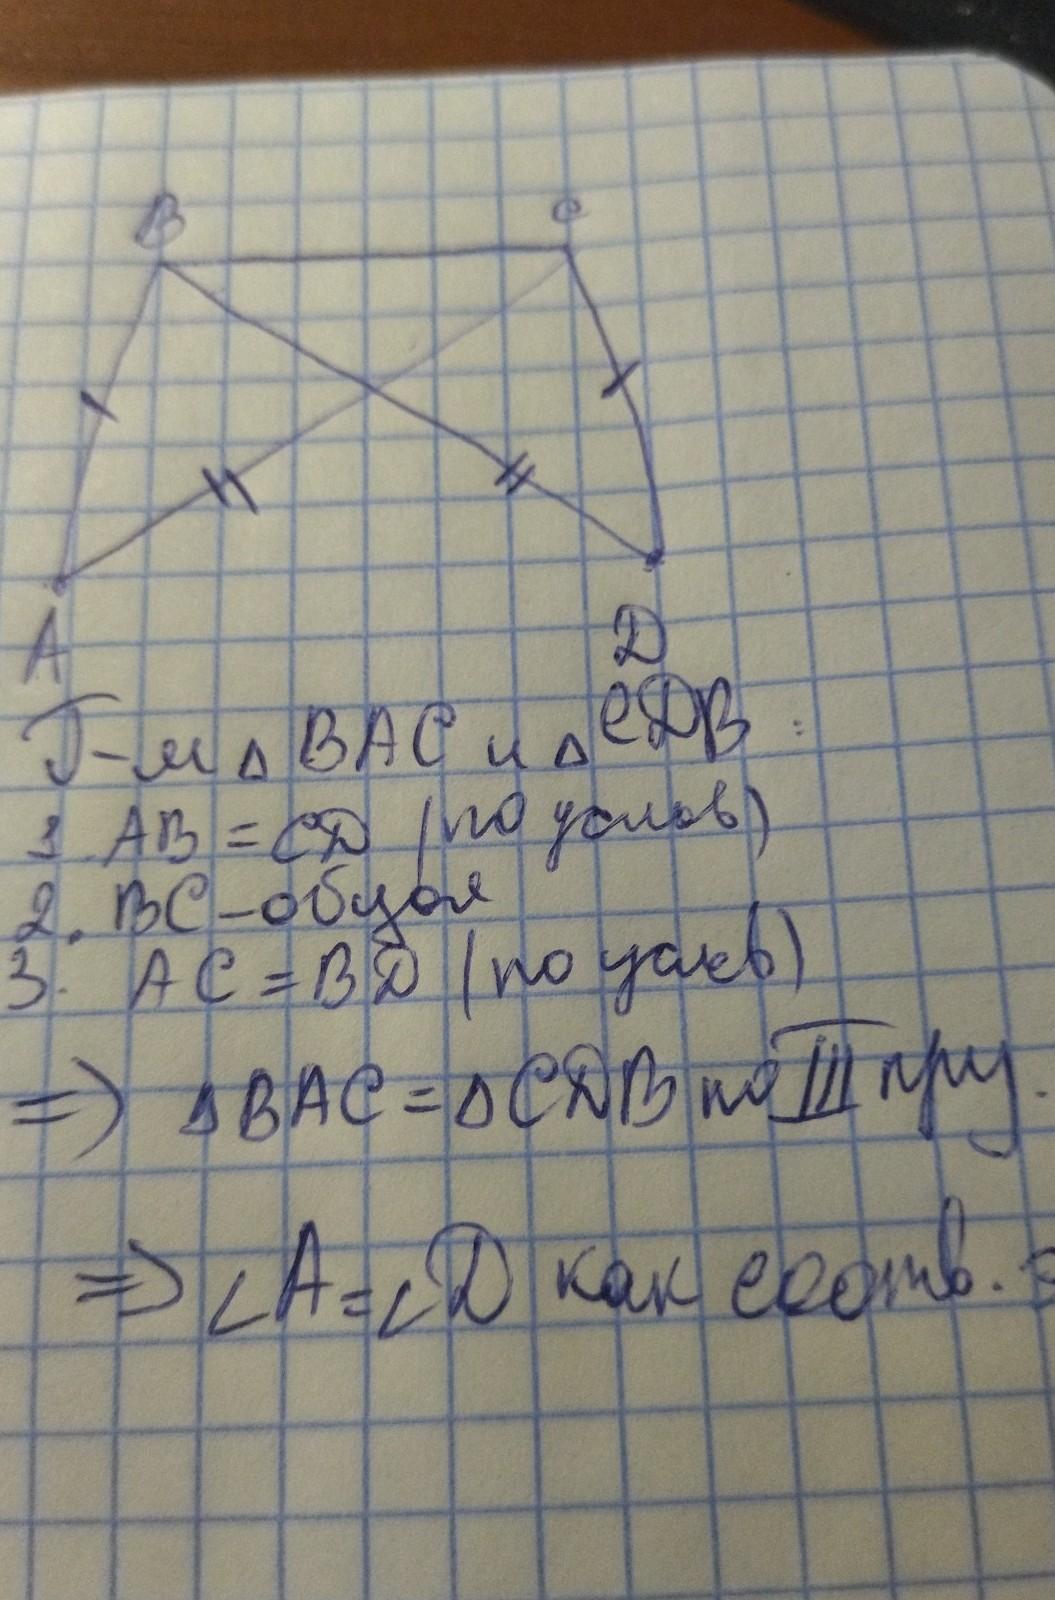 B C
A D
Г-м △ BAC и △ CDB :
1. AB = CD (по услов)
2. BC - общая
3. AC = BD (по услов)
=> △BAC = △CDB по III пр
=> ∠A = ∠D как соотв.